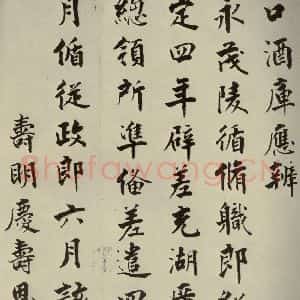 口酒庫應辦
永茂陵循脩職郎
定四年辟差充湖
總領所準俻差遣
月循從政郎六月該
壽明慶壽恩
Shufawang.CN